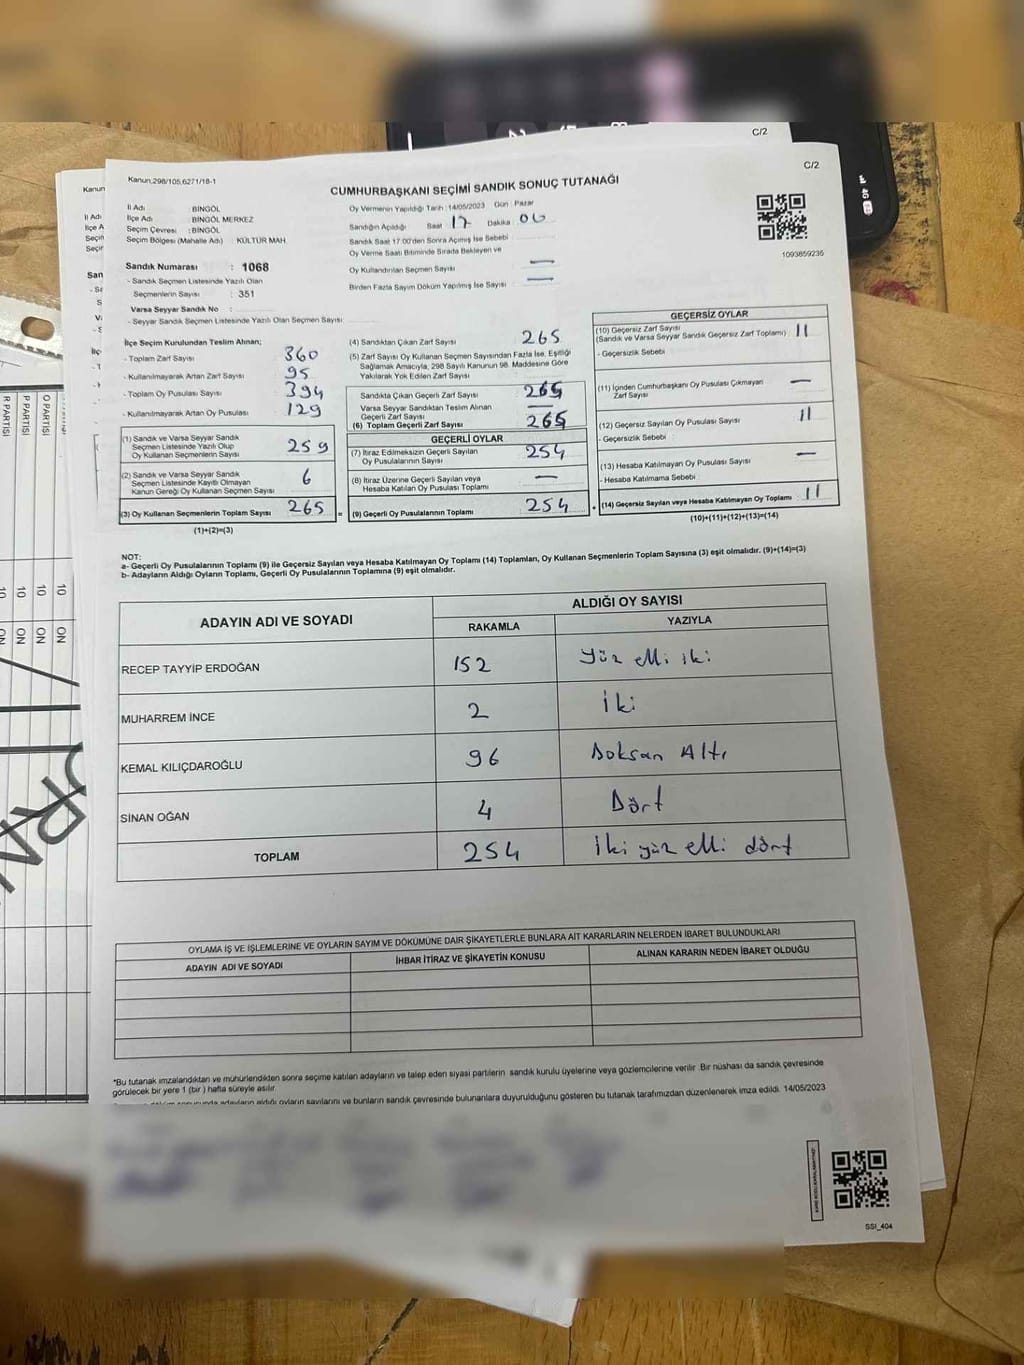 C/2
C/2
Kanun;298/105,6271/18-1
CUMHURBAŞKANI SEÇİMİ SANDIK SONUÇ TUTANAĞI
İl Adı : BİNGÖL
İlçe Adı : BİNGÖL MERKEZ
Seçim Çevresi : BİNGÖL
Seçim Bölgesi (Mahalle Adı) : KÜLTÜR MAH.
Sandık Numarası : 1068
- Sandık Seçmen Listesinde Yazılı Olan
Seçmenlerin Sayısı : 351
Varsa Seyyar Sandık No :
- Seyyar Sandık Seçmen Listesinde Yazılı Olan Seçmen Sayısı
Oy Vermenin Yapıldığı Tarih :14/05/2023 Gün : Pazar
Sandığın Açıldığı Saat 17 Dakika : 06
Sandık Saat 17:00'den Sonra Açılmış İse Sebebi
Oy Verme Saati Bitiminde Sırada Bekleyen ve
Oy Kullandırılan Seçmen Sayısı —
Birden Fazla Sayım Döküm Yapılmış İse Sayısı : —
1093859235
İlçe Seçim Kurulundan Teslim Alınan;
- Toplam Zarf Sayısı 360
- Kullanılmayarak Artan Zarf Sayısı 95
- Toplam Oy Pusulası Sayısı 394
- Kullanılmayarak Artan Oy Pusulası 129
(1) Sandık ve Varsa Seyyar Sandık
Seçmen Listesinde Yazılı Olup
Oy Kullanan Seçmenlerin Sayısı 259
(2) Sandık ve Varsa Seyyar Sandık
Seçmen Listesinde Kayıtlı Olmayan
Kanun Gereği Oy Kullanan Seçmen Sayısı 6
(3) Oy Kullanan Seçmenlerin Toplam Sayısı 265 =
(1)+(2)=(3)
(4) Sandıktan Çıkan Zarf Sayısı 265
(5) Zarf Sayısı Oy Kullanan Seçmen Sayısından Fazla İse, Eşitliği
Sağlamak Amacıyla, 298 Sayılı Kanunun 98. Maddesine Göre
Yakılarak Yok Edilen Zarf Sayısı
Sandıkta Çıkan Geçerli Zarf Sayısı 265
Varsa Seyyar Sandıktan Teslim Alınan
Geçerli Zarf Sayısı —
(6) Toplam Geçerli Zarf Sayısı 265
GEÇERLİ OYLAR
(7) İtiraz Edilmeksizin Geçerli Sayılan
Oy Pusulalarının Sayısı 254
(8) İtiraz Üzerine Geçerli Sayılan veya
Hesaba Katılan Oy Pusulası Toplamı —
(9) Geçerli Oy Pusulalarının Toplamı 254 +
GEÇERSİZ OYLAR
(10) Geçersiz Zarf Sayısı
(Sandık ve Varsa Seyyar Sandık Geçersiz Zarf Toplamı) 11
- Geçersizlik Sebebi
(11) İçinden Cumhurbaşkanı Oy Pusulası Çıkmayan
Zarf Sayısı —
(12) Geçersiz Sayılan Oy Pusulası Sayısı 11
- Geçersizlik Sebebi :
(13) Hesaba Katılmayan Oy Pusulası Sayısı —
- Hesaba Katılmama Sebebi
(14) Geçersiz Sayılan veya Hesaba Katılmayan Oy Toplamı 11
(10)+(11)+(12)+(13)=(14)
NOT:
a- Geçerli Oy Pusulalarının Toplamı (9) ile Geçersiz Sayılan veya Hesaba Katılmayan Oy Toplamı (14) Toplamları, Oy Kullanan Seçmenlerin Toplam Sayısına (3) eşit olmalıdır. (9)+(14)=(3)
b- Adayların Aldığı Oyların Toplamı, Geçerli Oy Pusulalarının Toplamına (9) eşit olmalıdır.
ADAYIN ADI VE SOYADI
ALDIĞI OY SAYISI
RAKAMLA YAZIYLA
RECEP TAYYİP ERDOĞAN 152 Yüz elli iki
MUHARREM İNCE 2 İki
KEMAL KILIÇDAROĞLU 96 Doksan Altı
SİNAN OĞAN 4 Dört
TOPLAM 254 İki yüz elli dört
OYLAMA İŞ VE İŞLEMLERİNE VE OYLARIN SAYIM VE DÖKÜMÜNE DAİR ŞİKAYETLERLE BUNLARA AİT KARARLARIN NELERDEN İBARET BULUNDUKLARI
ADAYIN ADI VE SOYADI İHBAR İTİRAZ VE ŞİKAYETİN KONUSU ALINAN KARARIN NEDEN İBARET OLDUĞU
*Bu tutanak imzalandıktan ve mühürlendikten sonra seçime katılan adayların ve talep eden siyasi partilerin sandık kurulu üyelerine veya gözlemcilerine verilir .Bir nüshası da sandık çevresinde
görülecek bir yere 1 (bir ) hafta süreyle asılır.
adayların aldığı oyların sayılarını ve bunların sandık çevresinde bulunanlara duyurulduğunu gösteren bu tutanak tarafımızdan düzenlenerek imza edildi. 14/05/2023
SSI_404
Kanun
İl Adı
İlçe A
Seçim
Seçim
San
R PARTİSİ
P PARTİSİ
O PARTİSİ
10 ON
10 ON
10 ON
4G